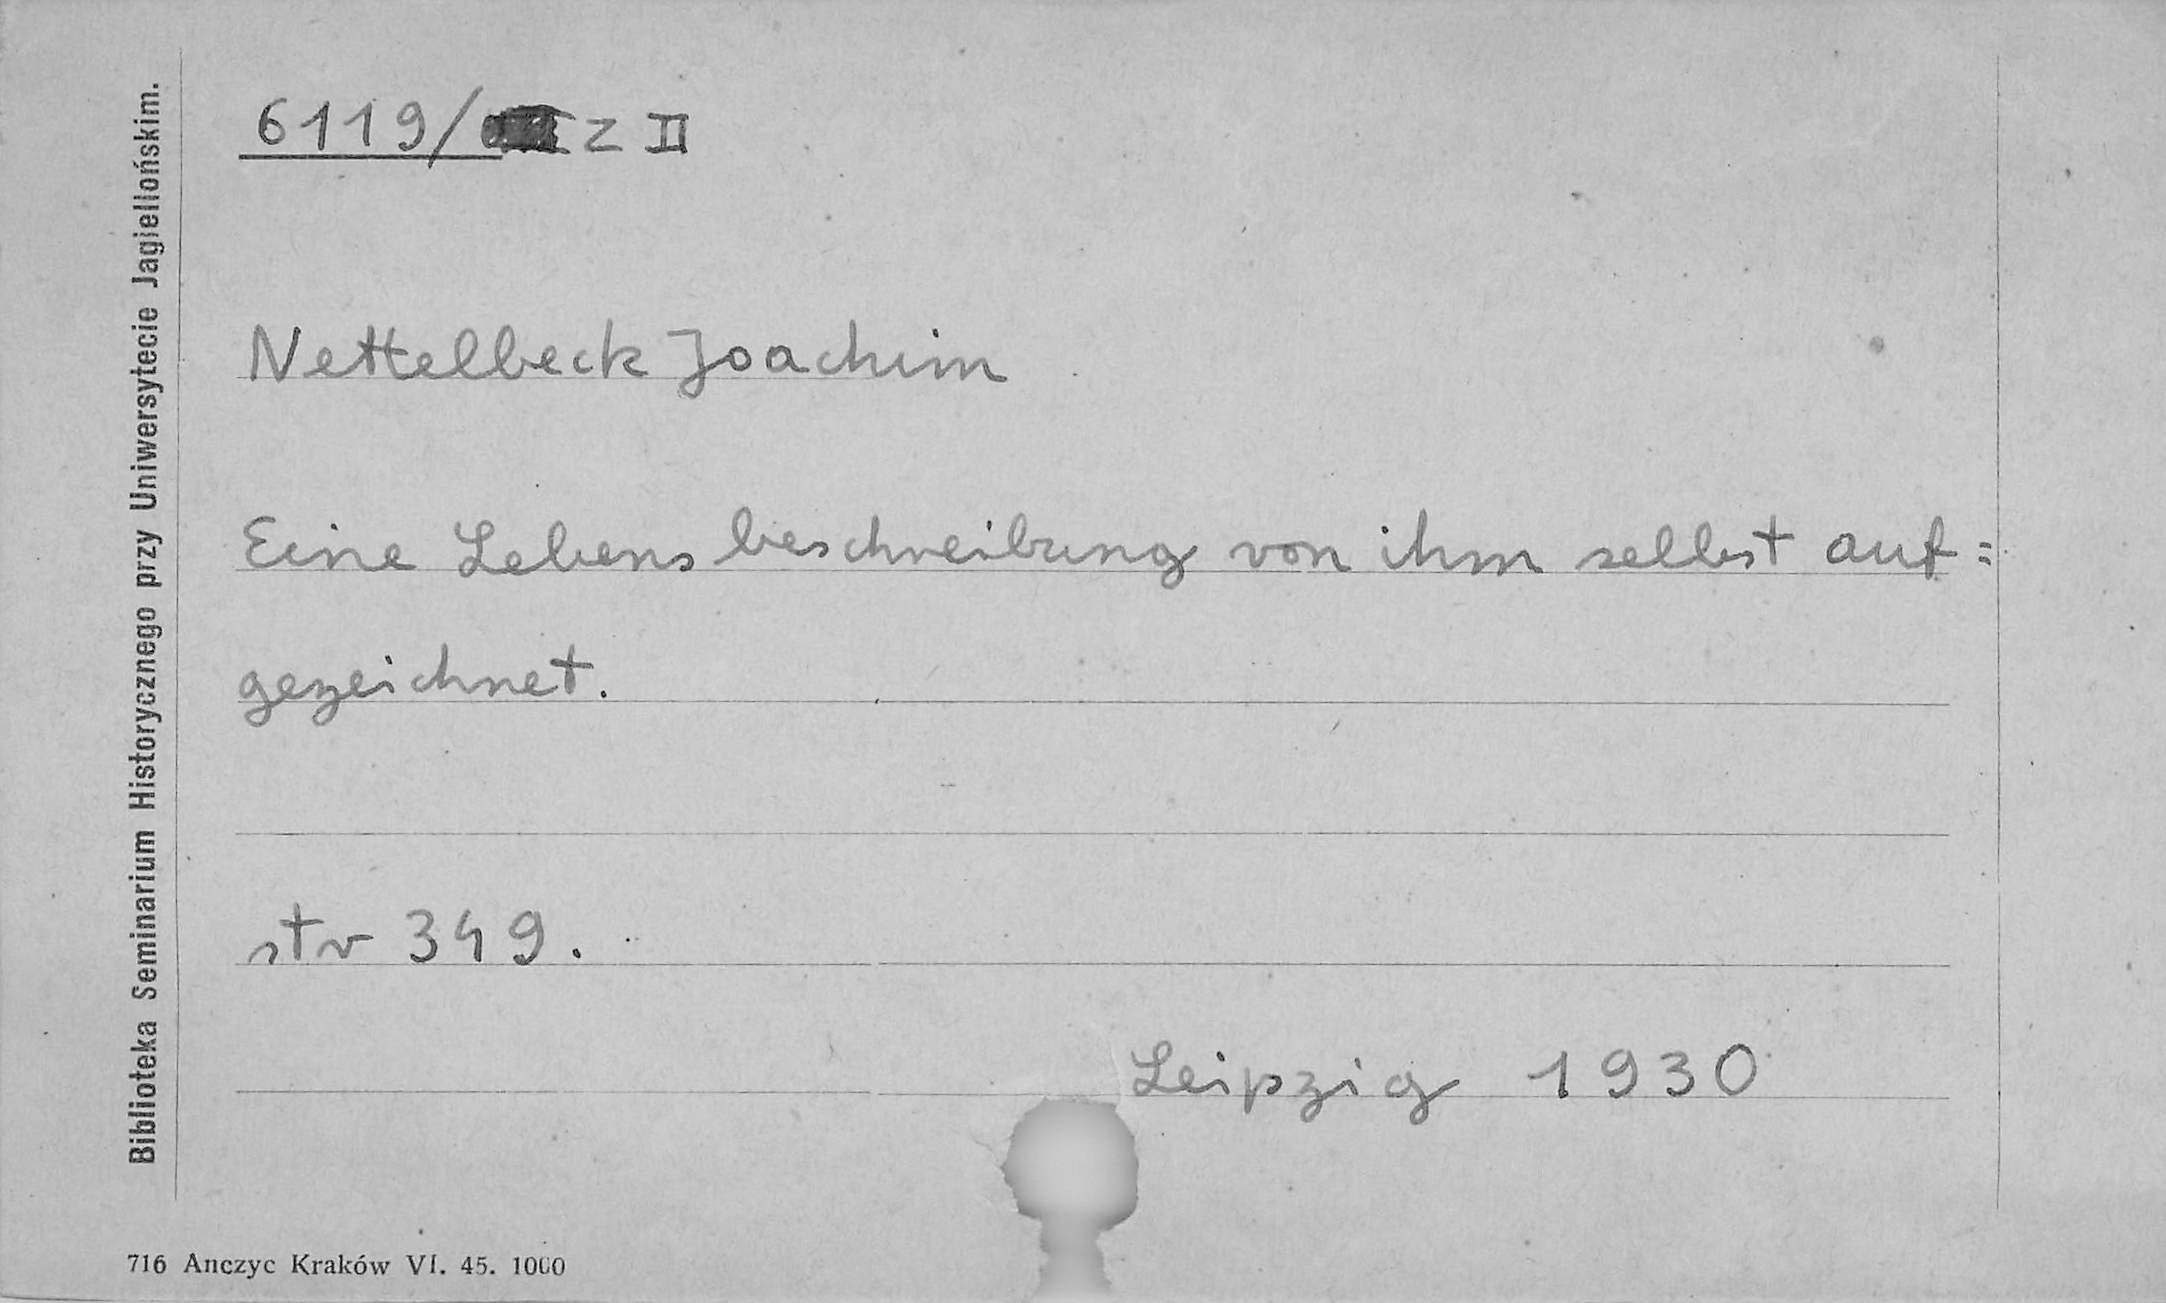 6119/ Z II
Nettelbeck Joachim
Eine Lebensbeschreibung von ihm selbst auf=
gezeichnet.
str 349.
Leipzig 1930
Biblioteka Seminarium Historycznego przy Uniwersytecie Jagiellońskim.
716 Anczyc Kraków VI. 45. 1000